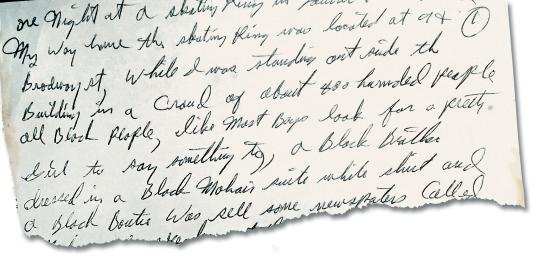 one Night at a skating Ring in
My way home the skating Ring was located at 94 ①
Brodway st, While I was standing out side the
Building in a Croud of about 400 hundled people
all Black People, like Most Boys look for a pretty.
Girl to say something to, a Black Brother
dressed in a Black Mohair suite white shirt and
a Black Boutie Was sell some newspaters Called